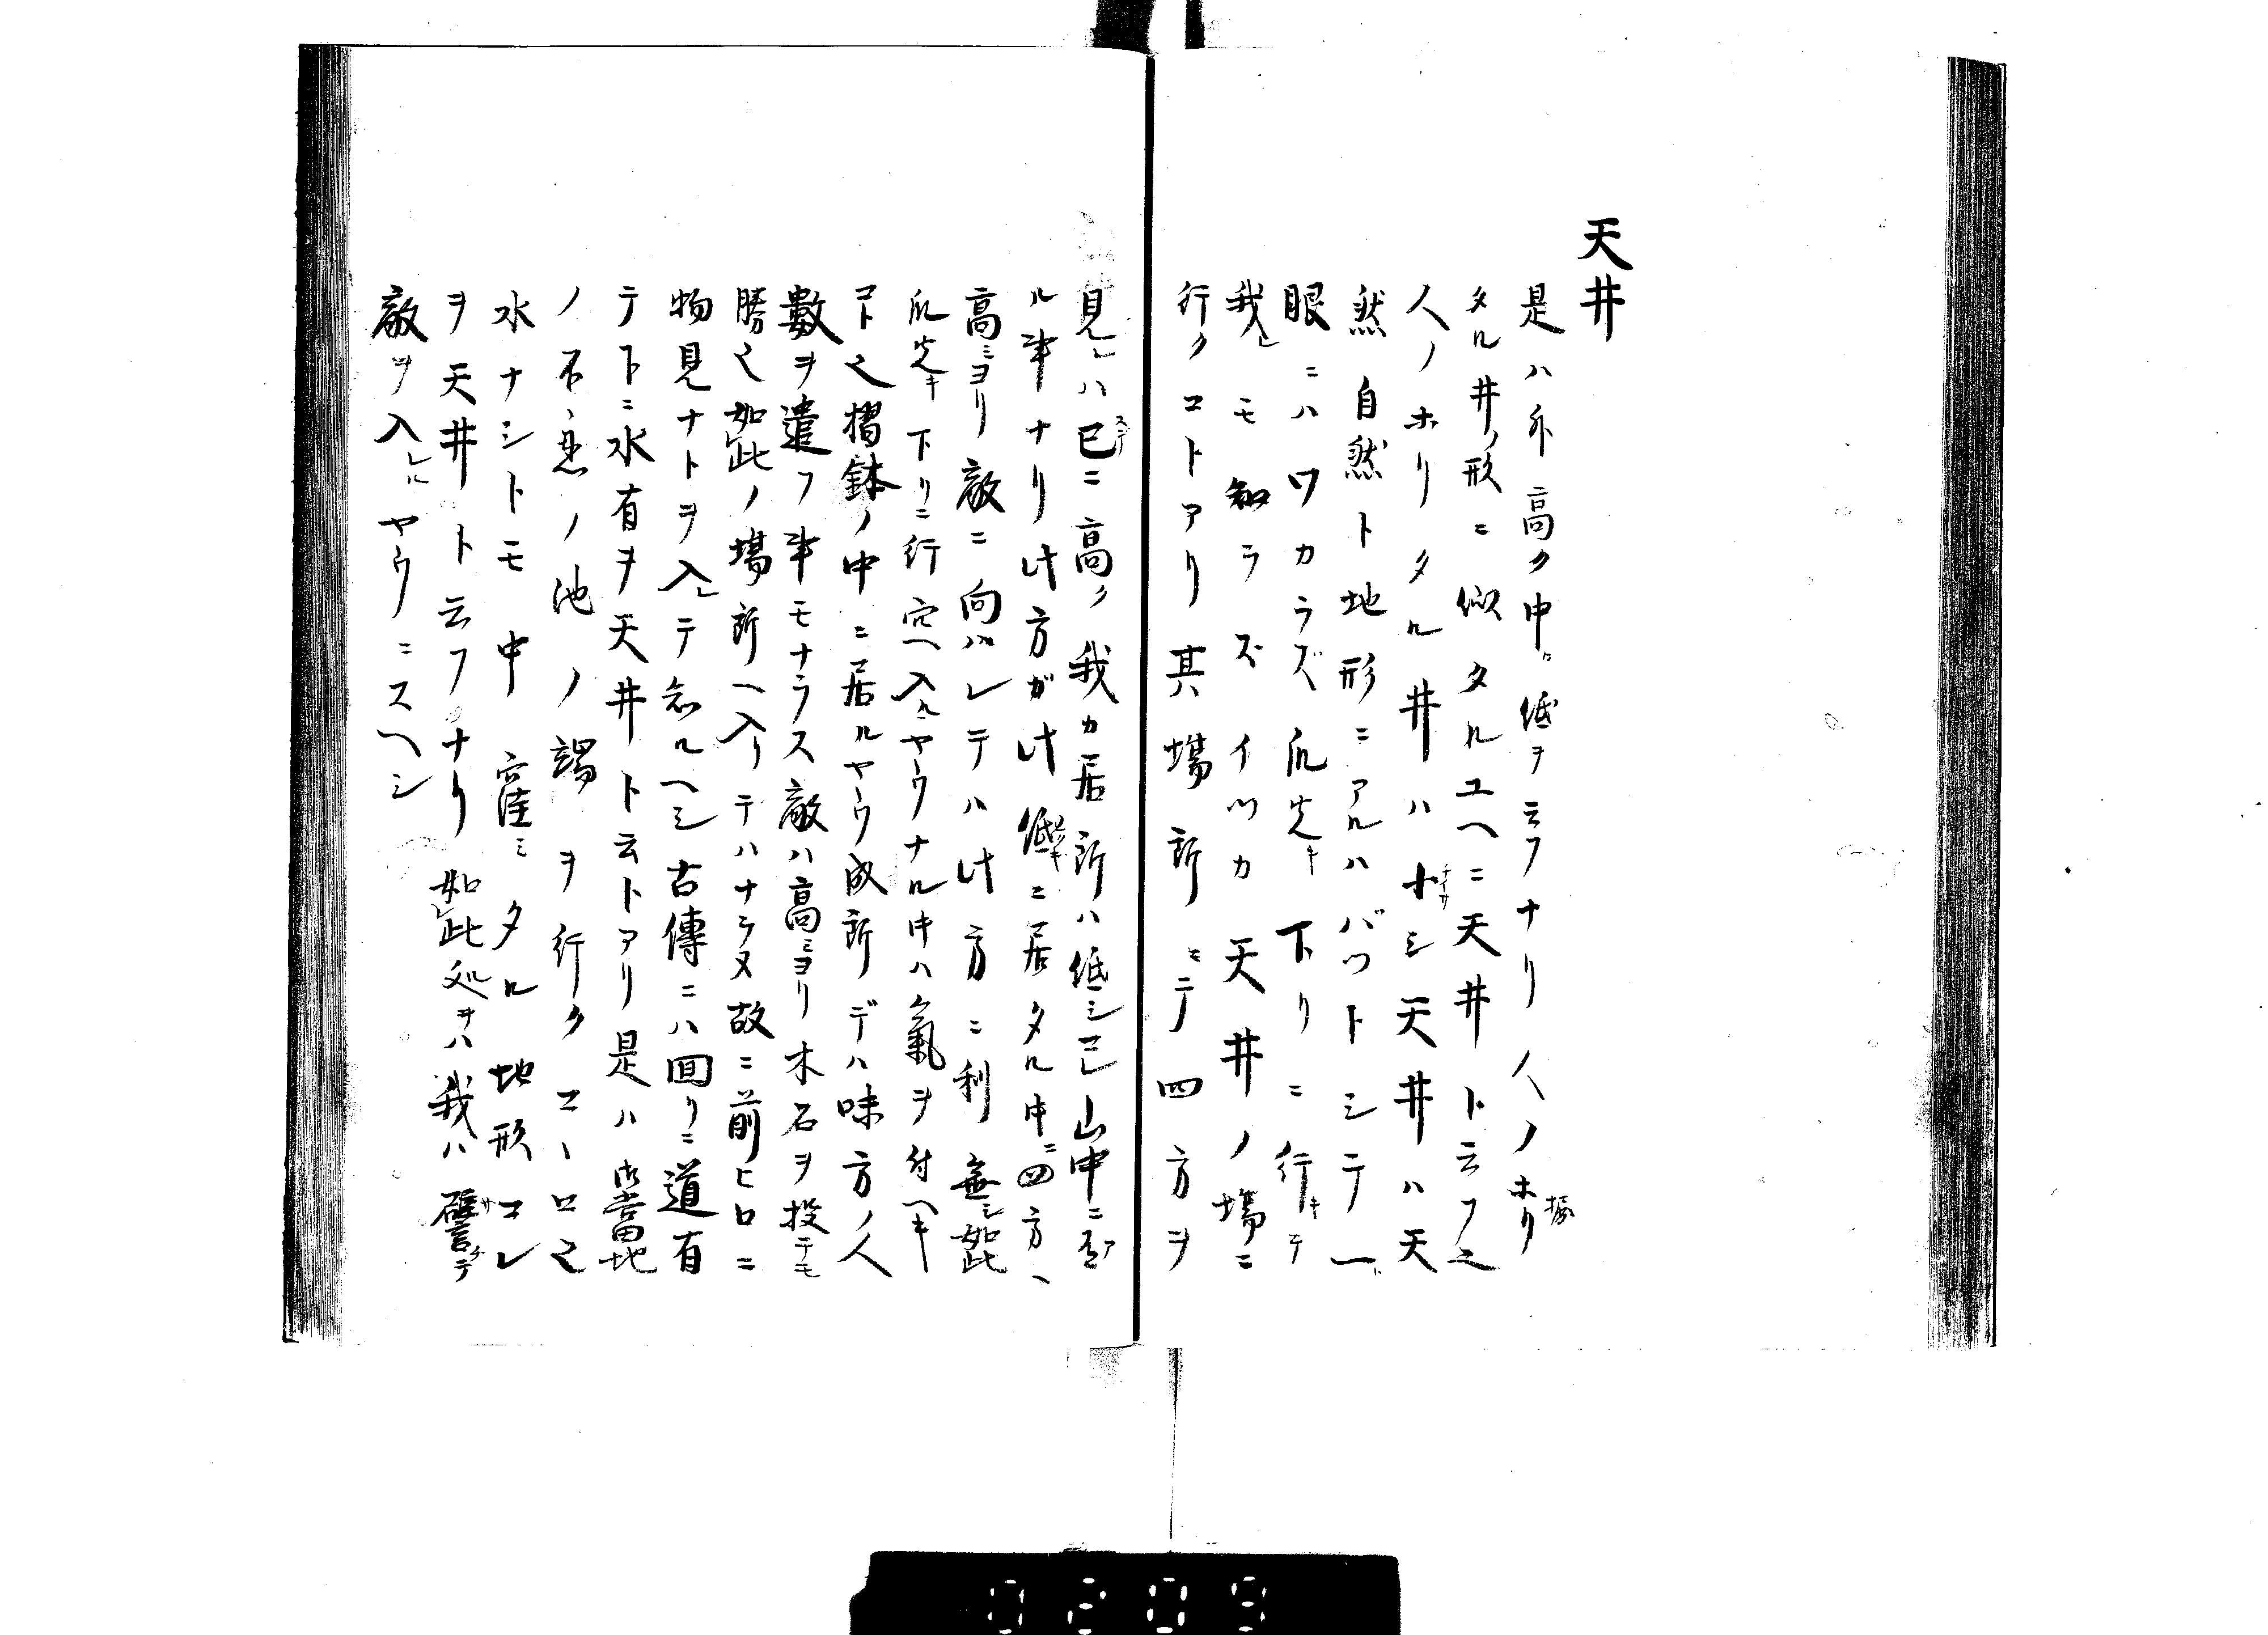 天井
是ハ外高ク中ニ低ヲ云フナリ人ノホリ掘
タル井ノ形ニ似タルユヘニ天井ト云フ也
人ノホリタル井ハ小シ天井ハ天
然自然ト地形ニアルハバツトシテ一ト
眼ニハワカラズ爪先キ下リニ行キテ
我レモ知ラズイツカ天井ノ場ニ
行クコトアリ其場所ニテ四方ヲ
見レハ已スデニ高ク我カ居所ハ低シ已山中ニアル
ル事ナリ此方ガ此低キニ居タル中ニ四方ヘ
高ミヨリ敵ニ向ハレテハ此方ニ利無シ如此
爪先キ下リニ行穴ヘ入ルヤウナル中ハ氣ヲ付ヘキ
コト也摺鉢ノ中ニ居ルヤウ成所デハ味方ノ人
數ヲ遣フ事モナラス敵ハ高ミヨリ木石ヲ投テモ
勝也如此ノ場所ヘ入リテハナラヌ故ニ前ヒロニ
物見ナトヲ入レテ知ルヘシ古傳ニハ回リニ道有
テ下ニ水有ヲ天井ト云トアリ是ハ御當地
ノ不忍ノ池ノ端ヲ行クコヽロ也
水ナシトモ中窪ミタル地形コレ
ヲ天井ト云フナリ如此処ヲハ我ハ避サケテ
敵ヲ入レルヤウニスヘシ
0209